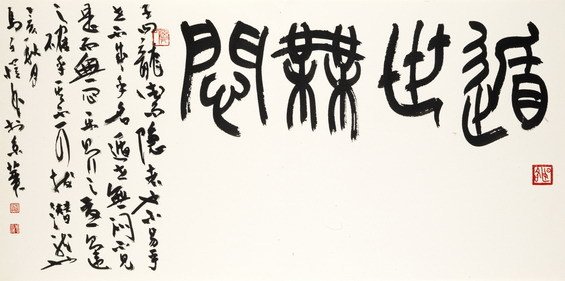 遁世無悶
子曰龍德而隱者也不易乎
世不成乎名遁世無悶不見
是而無悶樂則行之憂則違
之確乎其不可拔潛龍也
亥秋月
馬 於京華